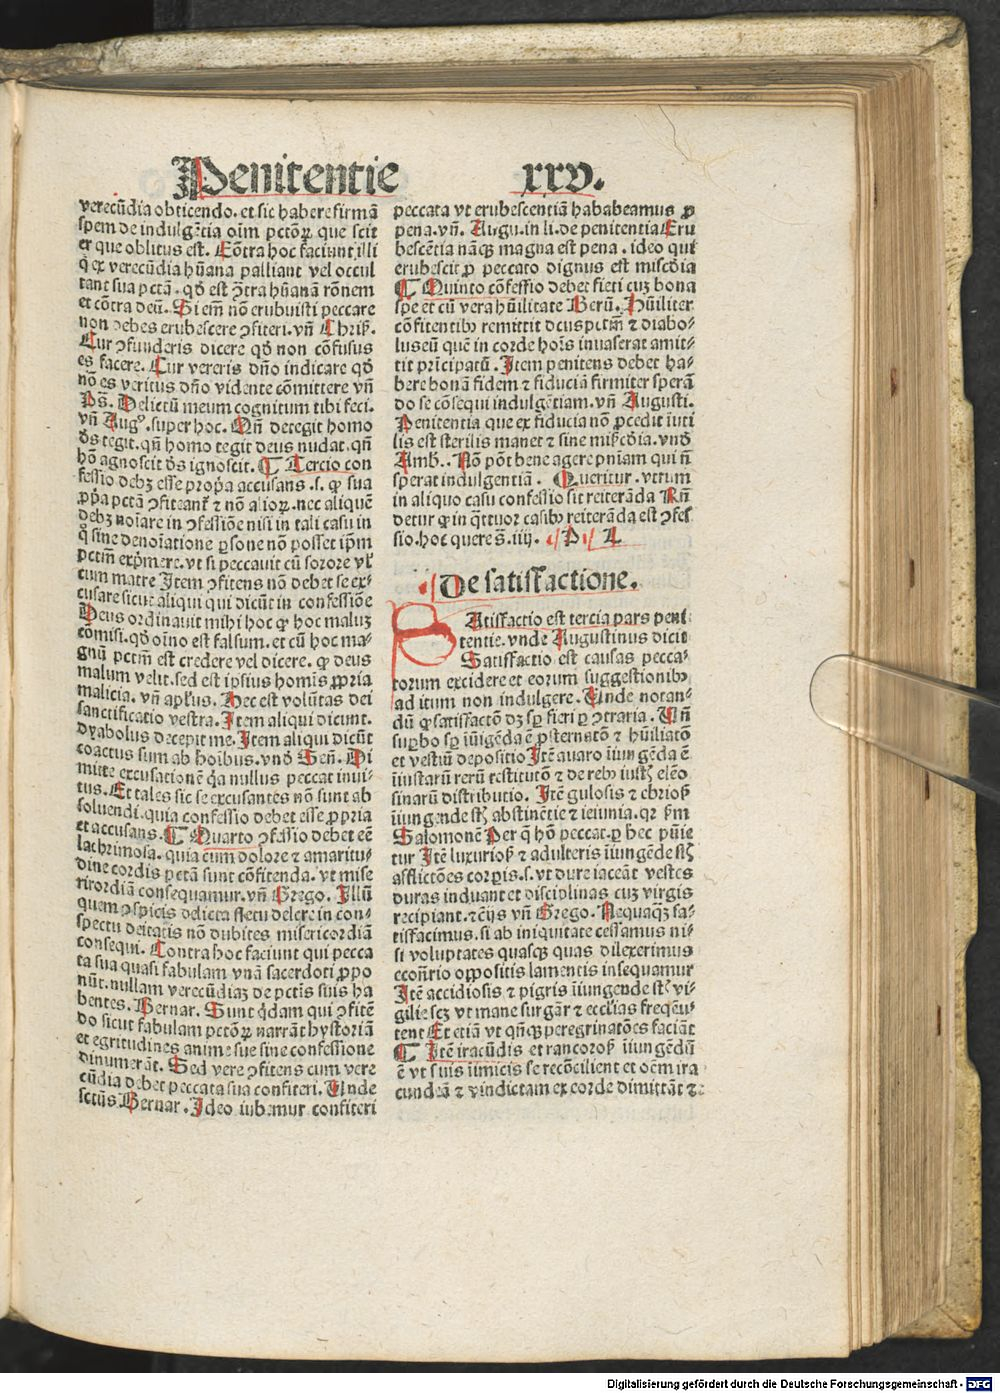 Penitentie xxv.
verecūdia obticendo. et sic habere firmā
spem de indulgētia oīm pctōꝝ que scit
et que oblitus est. Cōtra hoc faciunt illi
q̇ ex verecūdia hūana palliant vel occul
tant sua pctā. qđ est ꝯtra hūanā rōnem
et cōtra deū. Si em̄ nō erubuisti peccare
non debes erubescere ꝯfiteri. vn̄ Chriſ.
Cur ꝯfunderis dicere qđ non cōfusus
es facere. Cur vereris dn̄o indicare qđ
nō es veritus dn̄o vidente cōmittere vn̄
Ps̄. Delictū meum cognitum tibi feci.
vn̄ Augꝰ. super hoc. Qn̄ detegit homo
ds̄ tegit. qn̄ homo tegit deus nudat. qn̄
hō agnoscit ds̄ ignoscit. ¶ Tercio con
fessio debꝫ esse propͥa accusans .s. ꝙ sua
ꝓpͥa pctā ꝯfiteant᷑ ⁊ nō alioꝝ. nec aliquē
debꝫ noīare in ꝯfessiōe nisi in tali casu in
q̊ sine denoīatione ꝑsone nō posset ip̄m
pctm̄ expͥmere. vt si peccauit cū sorore vł
cum matre Item ꝯfitens nō debet se ex⸗
cusare sicut aliqui qui dicūt in confessiōe
Deus ordinauit mihi hoc ꝙ hoc maluꝫ
cōmisi. qđ oīno est falsum. et cū hoc ma⸗
gnū pctm̄ est credere vel dicere. ꝙ deus
malum velit. sed est ipsius homīs ꝓpria
malicia. vn̄ apłus. Hec est volūtas dei
sanctificatio vestra. Item aliqui dicunt.
Dyabolus decepit me. Item aliqui dicūt
coactus sum ab hoībus. vnđ Sen̄. Di
mitte excusationē q̇a nullus peccat inui⸗
tus. Et tales sic se excusantes nō sunt ab
soluendi. quia confessio debet esse ꝓpria
et accusans. ¶ Quarto ꝯfessio debet eē
lachrimosa. quia cum dolore ⁊ amaritu⸗
dine cordis pctā sunt cōfitenda. vt mise
ricordiā consequamur. vn̄ Grego. Illū
quem ꝯspicis delicta fletu delere in con⸗
spectu deitatis nō dubites misericordiā
consequi. Contra hoc faciunt qui pecca
ta sua quasi fabulam vnā sacerdoti ꝓpo
nūt. nullam verecūdiaꝫ de pctīs suis ha
bentes. Bernar. Sunt qͥdam qui ꝯfitē
do sicut fabulam pctōꝝ narrāt hystoriā
et egritudines anime sue sine confessione
dinumerāt. Sed vere ꝯfitens cum vere
cūdia debet peccata sua confiteri. Unde
sctūs Bernar. Ideo iubemur confiteri
peccata vt erubescentiā hababeamus ꝓ
pena. vn̄. Augu. in li. de penitentia Eru
bescētia nāqꝫ magna est pena. ideo qui
erubescit ꝓ peccato dignus est miscđia
¶ Quinto cōfessio debet fieri cuꝫ bona
spe et cū vera hūilitate Berū. Hūiliter
cōfitentibꝫ remittit deus pctm̄ ⁊ diabo⸗
lus eū quē in corde hoīs inuaserat amit⸗
tit prīcipatū. Item penitens debet ha⸗
bere bonā fidem ⁊ fiduciā firmiter sperā
do se cōsequi indulgētiam. vn̄ Augusti.
Penitentia que ex fiducia nō ꝓcedit iuti
lis est sterilis manet ⁊ sine mis̄cđia. vnđ
Amb̄.. Nō pōt bene agere pn̄iam qui n̄
sperat indulgentiā. Queritur. vtrum
in aliquo casu confessio sit reiterāda Rn̄
detur ꝙ in q̄ttuor casibꝫ reiterāda est ꝯfes
sio. hoc quere s̄. iiij. P L
De satisfactione.
SAtisfactio est tercia pars peni
tentie. vnde Augustinus dicit
Satisfactio est causas pecca⸗
torum excidere et eorum suggestionibꝫ
ad itum non indulgere. Unde notan⸗
dū ꝙ satisfactō dꝫ sꝑ fieri ꝑ ꝯtraria. Un̄
suꝑbo sꝑ iūigēda ē ꝓsternatō ⁊ hūiliatō
et vestiū depositio Itē auaro iiungēda ē
iiustarū rerū restitutō ⁊ de rebꝫ iustꝭ eleo
sinarū distributio. Itē gulosis ⁊ ebrioß
iiungende stꝭ abstinētie ⁊ ieiunia. qꝛ ẜm
Salomonē Per q̄ hō peccat. ꝑ hec pūie
tur Itē luxurioß ⁊ adulteris iiungēde stꝭ
afflictōes corꝑis. s. vt dure iaceāt vestes
duras induant et disciplinas cuꝫ virgis
recipiant. ⁊cͣijs vn̄ Grego. Nequaqꝫ sa⸗
tisfacimus. si ab iniquitate cessamus ni⸗
si voluptates quasqꝫ quas dilexerimus
econ̄rio oppositis lamentis insequamur
Itē accidiosis ⁊ pigris iiungende stꝭ vi⸗
gilie scꝫ vt mane surgāt ⁊ eccłias freqēu⸗
tent Et etiā vt qn̄qꝫ peregrinatōes faciāt
¶ Itē iracūdis et rancoroß iiungēdū
ē vt suis iimicis se recōcilient et oēm ira
cundiā ⁊ vindictam ex corde dimittāt ⁊
Digitalisierung gefördert durch die Deutsche Forschungsgemeinschaft - DFG